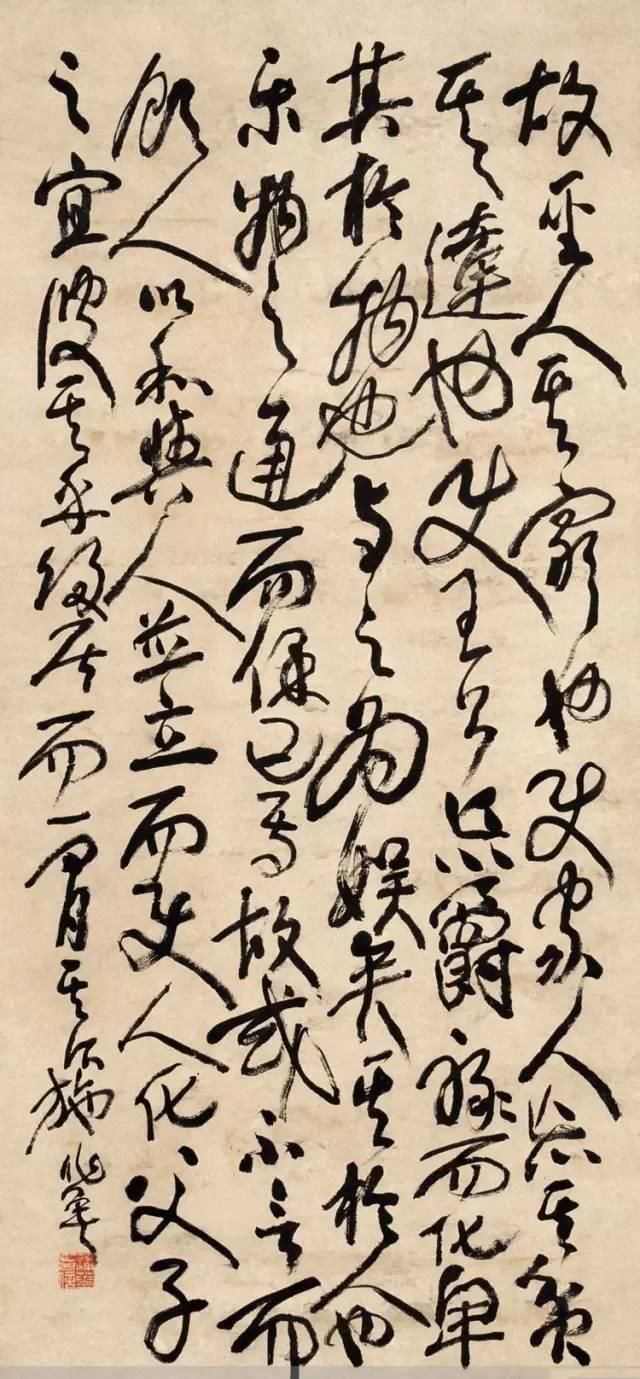 故聖人其窮也使家人忘其貧
其達也使王公忘爵祿而化卑
其於物也与之為娛矣其於人也
樂物之通而保己焉故或不言而
飲人以和與人並立而使人化父子
之宜彼其乎歸居而一閒其所施